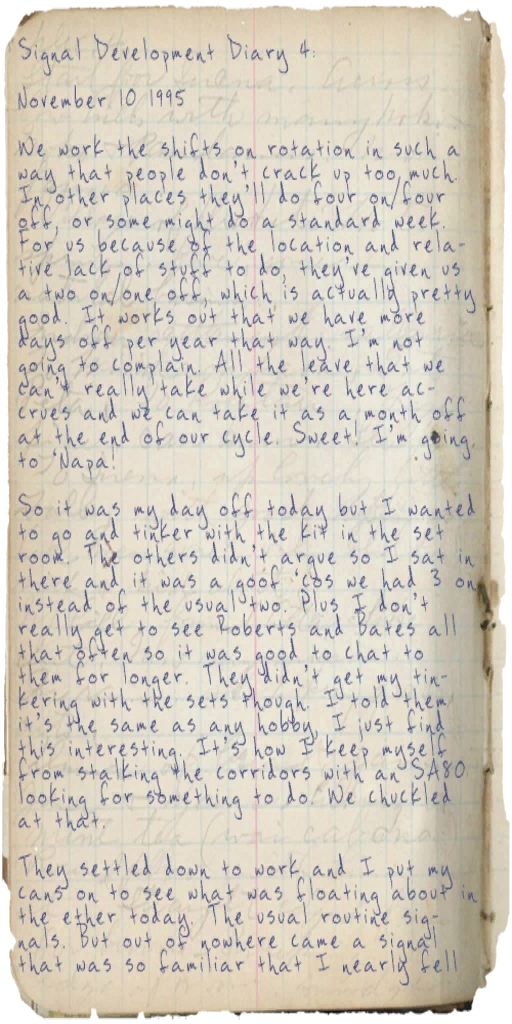 Signal Development Diary 4:
November 10 1995
We work the shifts on rotation in such a
way that people don't crack up too much.
In other places they'll do four on/four
off, or some might do a standard week.
For us because of the location and rela-
tive lack of stuff to do, they've given us
a two on/one off, which is actually pretty
good. It works out that we have more
days off per year that way. I'm not
going to complain. All the leave that we
can't really take while we're here ac-
crues and we can take it as a month off
at the end of our cycle. Sweet! I'm going
to 'Napa!
So it was my day off today but I wanted
to go and tinker with the kit in the set
room. The others didn't argue so I sat in
there and it was a goof 'cos we had 3 on
instead of the usual two. Plus I don't
really get to see Roberts and Bates all
that often so it was good to chat to
them for longer. They didn't get my tin-
kering with the sets though. I told them
it's the same as any hobby, I just find
this interesting. It's how I keep myself
from stalking the corridors with an SA80
looking for something to do. We chuckled
at that.
They settled down to work and I put my
cans on to see what was floating about in
the ether today. The usual routine sig-
nals. But out of nowhere came a signal
that was so familiar that I nearly fell